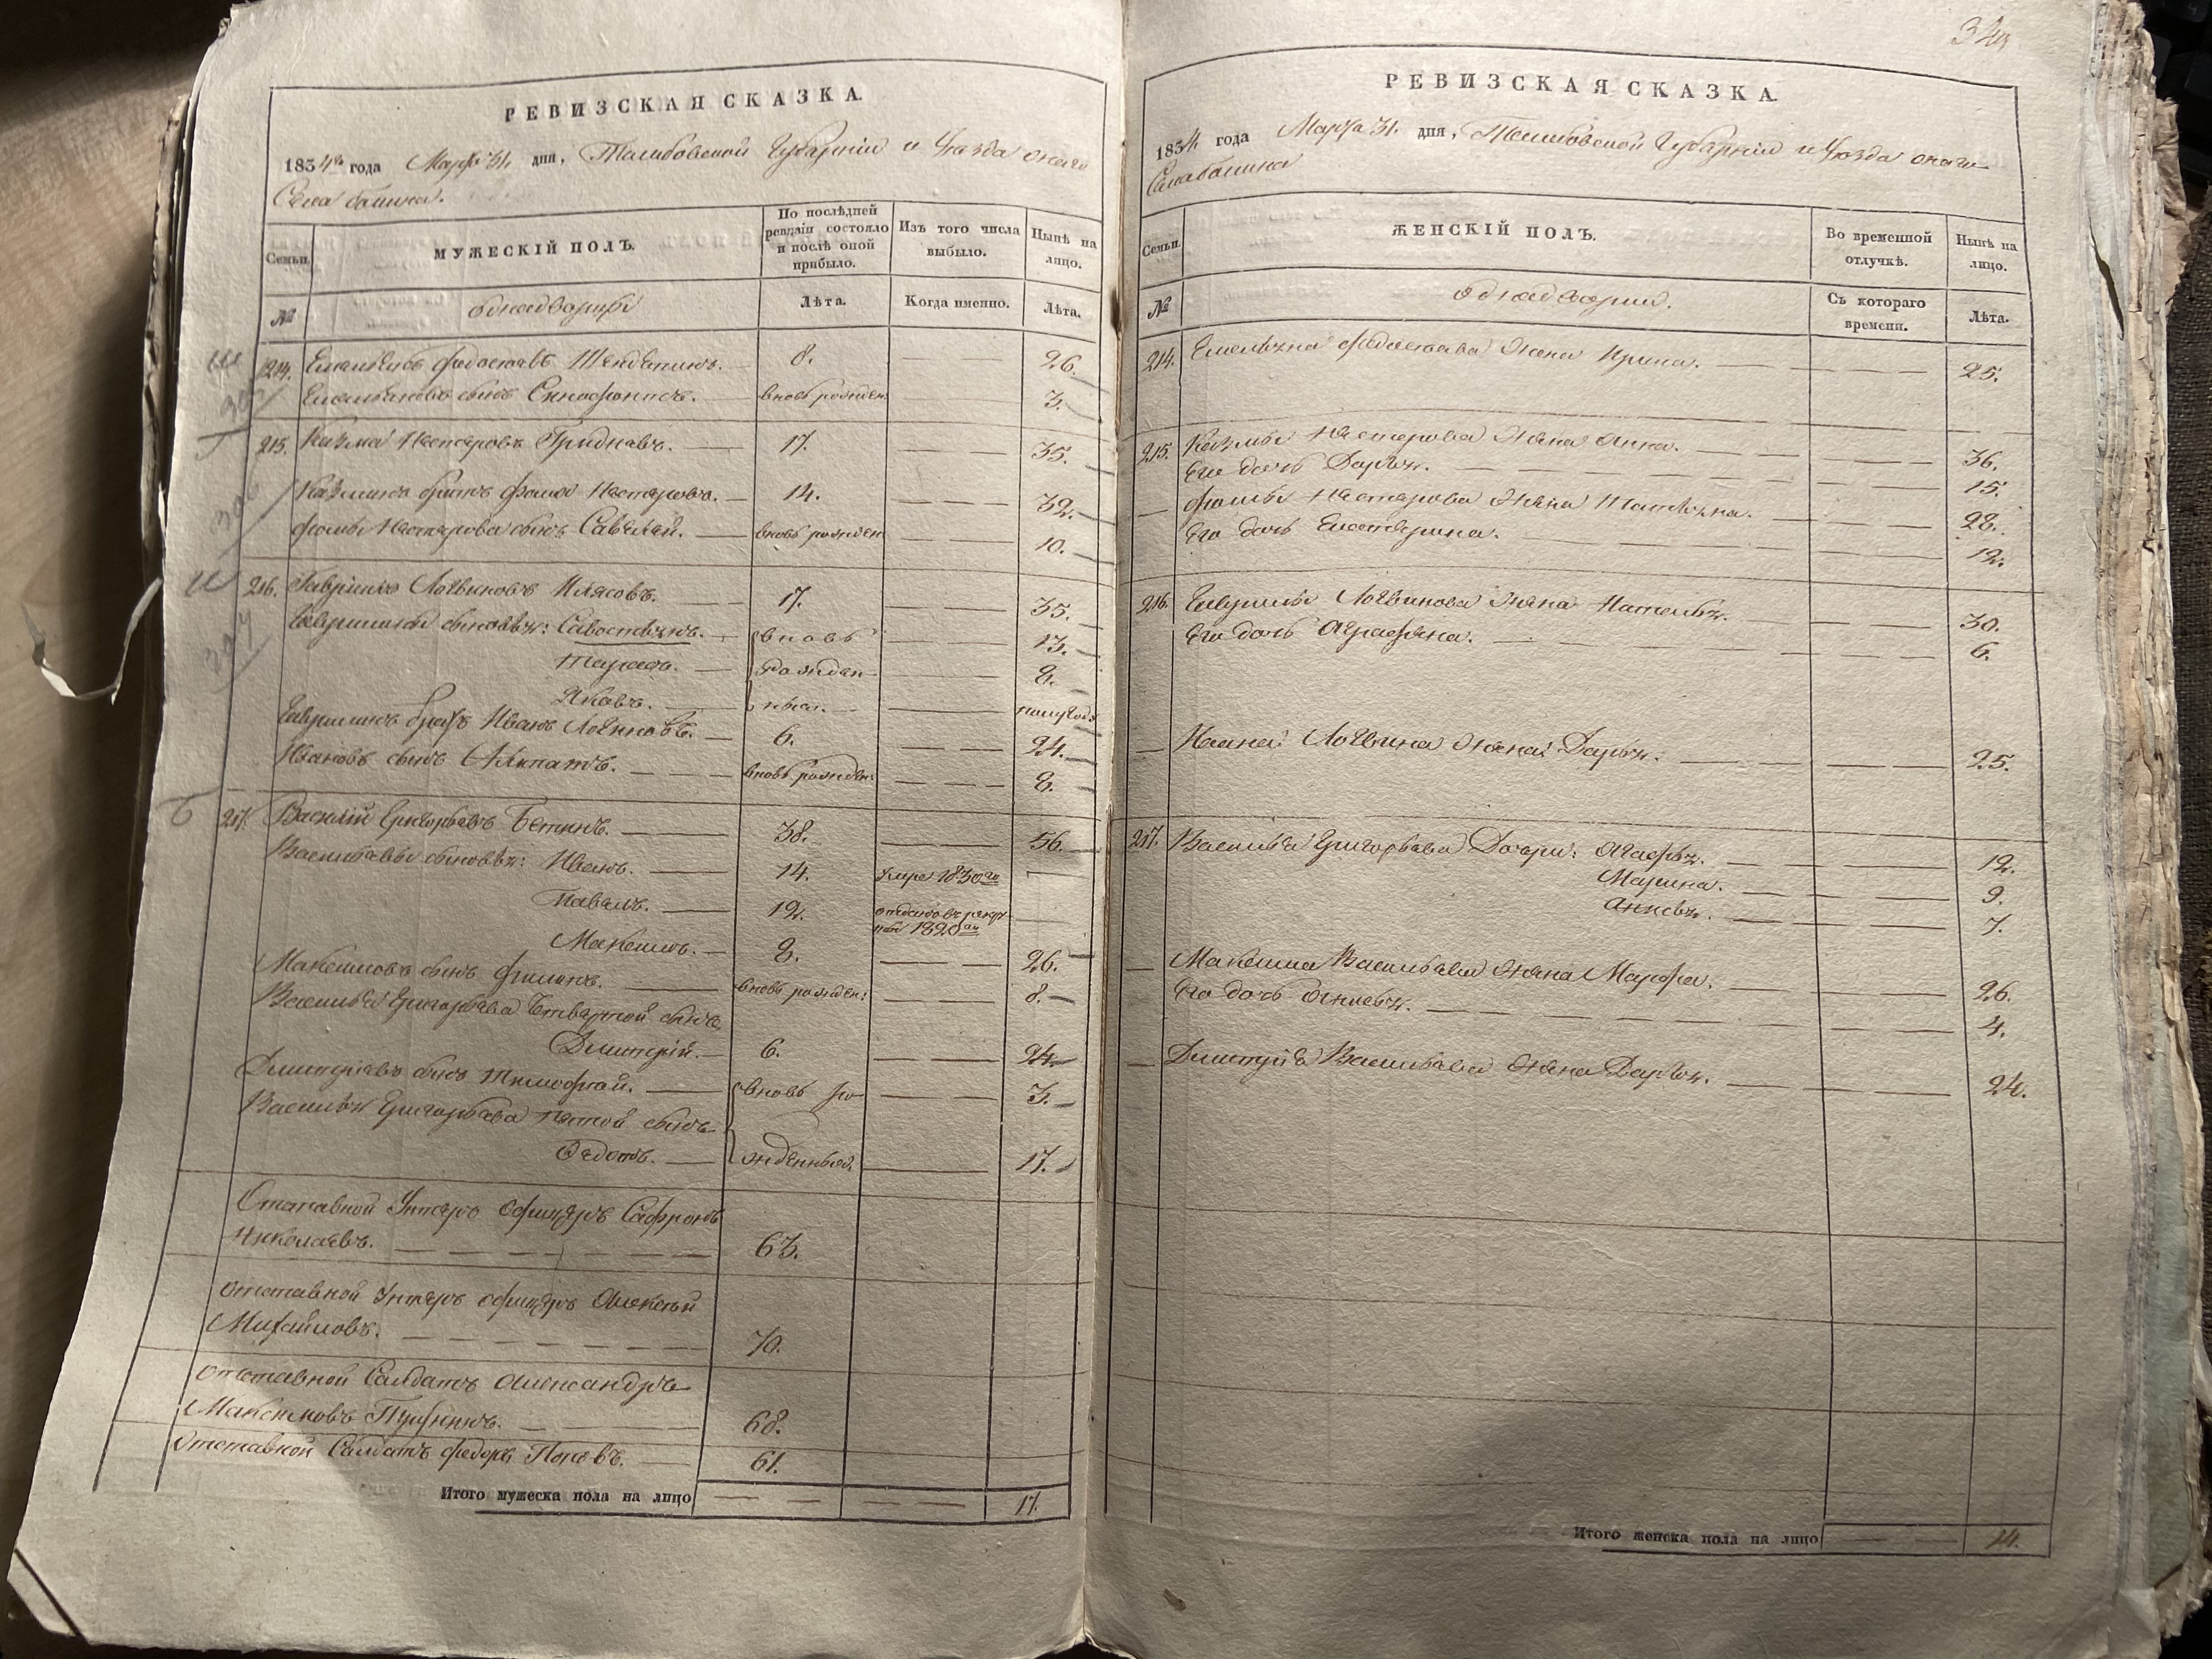 РЕВИЗСКАЯ СКАЗКА.
1834 года Марта 31. дня, Тамбовской Губернии и Уезда онаго
Села
Семьи.
МУЖЕСКІЙ ПОЛЪ.
По послѣдней ревизіи состояло и послѣ оной прибыло.
Изъ того числа выбыло.
Нынѣ на лицо.
№
однодворцы
Лѣта.
Когда именно.
Лѣта.
214. Емельянъ Федосеевъ 8. 26.
Емельяновъ сынъ вновь рожден: 3.
215. Казма Нестеровъ Гридневъ. 17. 35.
Казминъ братъ Фома Нестеровъ. 14. 32.
Фомы Нестерова сынъ Савелей. вновь рожден 10.
216. Гаврила Логвиновъ Илясовъ. 17. 35.
Гавриловы сыновья: Савостьянъ. вновь 13.
Тарасъ. рожден 8.
Яковъ. ныя. полугода
Гавриловъ братъ Иванъ Логвиновъ. 6. 24.
Ивановъ сынъ вновь рожден: 8.
217. Василій Григорьевъ Бетинъ. 38. 56.
Васильевы сыновья: Иванъ. 14. умре 1830го
Павелъ. 12. отданъ въ рекруты 1820
Максимъ. 8. 26.
Максимовъ сынъ Филипъ. вновь рожден: 8.
Василья Григорьева четвертой сынъ
Дмитрій. 6. 24.
Дмитріевъ сынъ Тимофей. вновь ро 3.
Василья Григорьева пятой сынъ
Федотъ. жденныя. 17.
Отставной Унтеръ Офицеръ Сафронъ
Николаевъ. 63.
отставной Унтеръ офицеръ Алексей
Михайловъ. 70.
отставной Салдатъ Александръ
Максимовъ 68.
Отставной Салдатъ Федоръ Поповъ. 61.
Итого мужеска пола на лицо 17.
РЕВИЗСКАЯ СКАЗКА.
1834 года Марта 31. дня, Тамбовской Губернии и Уезда онаго
Села
Семьи.
ЖЕНСКІЙ ПОЛЪ.
Во временной отлучкѣ.
Нынѣ на лицо.
№
однодворки.
Съ котораго времени.
Лѣта.
214. Емельяна Федосеева жена Ирина. 25.
215. Казмы Нестерова жена Анна. 36.
Его дочь Дарья. 15.
Фомы Нестерова жена Татьяна. 28.
Его дочь Екатерина. 12.
216. Гаврилы Логвинова жена Наталья. 30.
Его дочь Аграфена. 6.
Ивана Логвина жена Дарья. 25.
217. Василья Григорьева дочери: Агафья. 12.
Марина. 9.
7.
Максима Васильева жена Марфа. 26.
Его дочь 4.
Дмитрія Васильева жена Дарья. 24.
Итого женска пола на лицо 14.